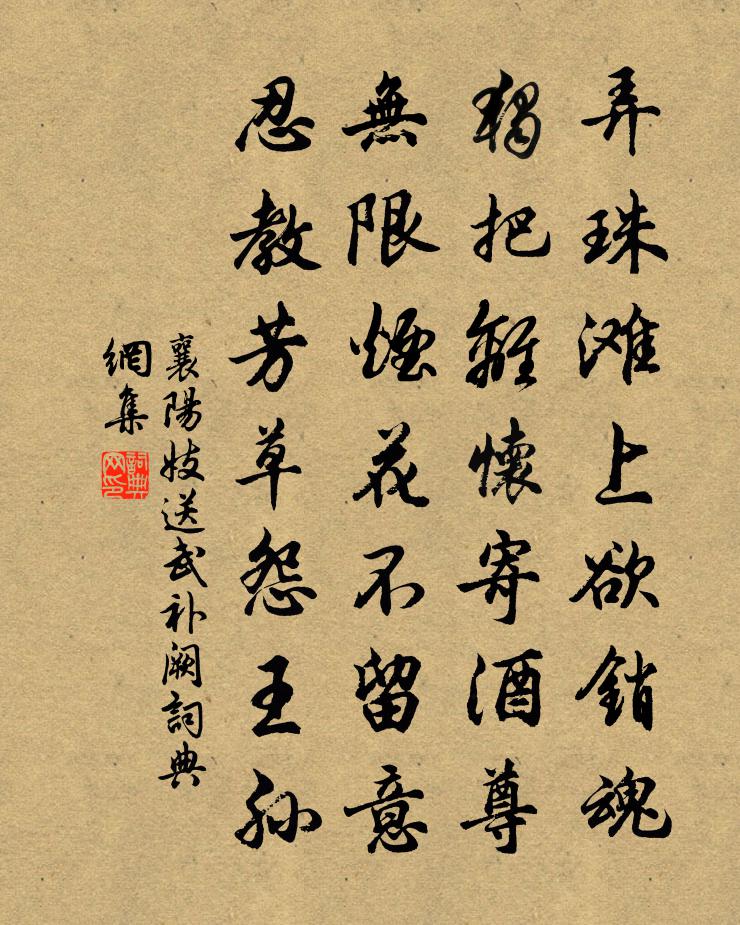 弄珠滩上欲銷魂
獨把離懷寄酒尊
無限煙花不留意
忍教芳草怨王孫
襄陽妓送武补阙詞典
網集
詞典
网印